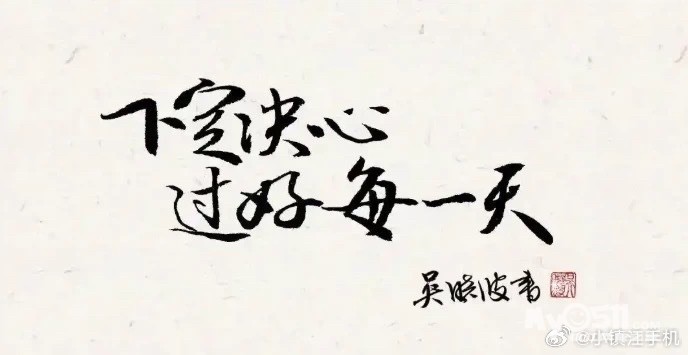 下定决心
过好每一天
吴晓波书
@小镇汪手机